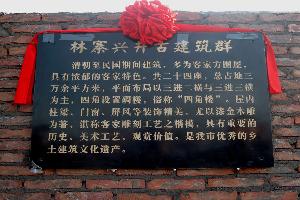 林寨兴井古建筑群
清朝至民国期间建筑，多为客家方围屋，
具有浓郁的客家特色。共二十四座，总占地三
万余平方米，平面布局以三进二横与三进三横
为主，四角设置碉楼，俗称“四角楼”。屋内
柱梁、门窗、屏风等装饰精美，尤以漆金木雕
为著，堪称客家雕刻工艺之楷模，具有重要的
历史、美术工艺、观赏价值。是我市优秀的乡
土建筑文化遗产。